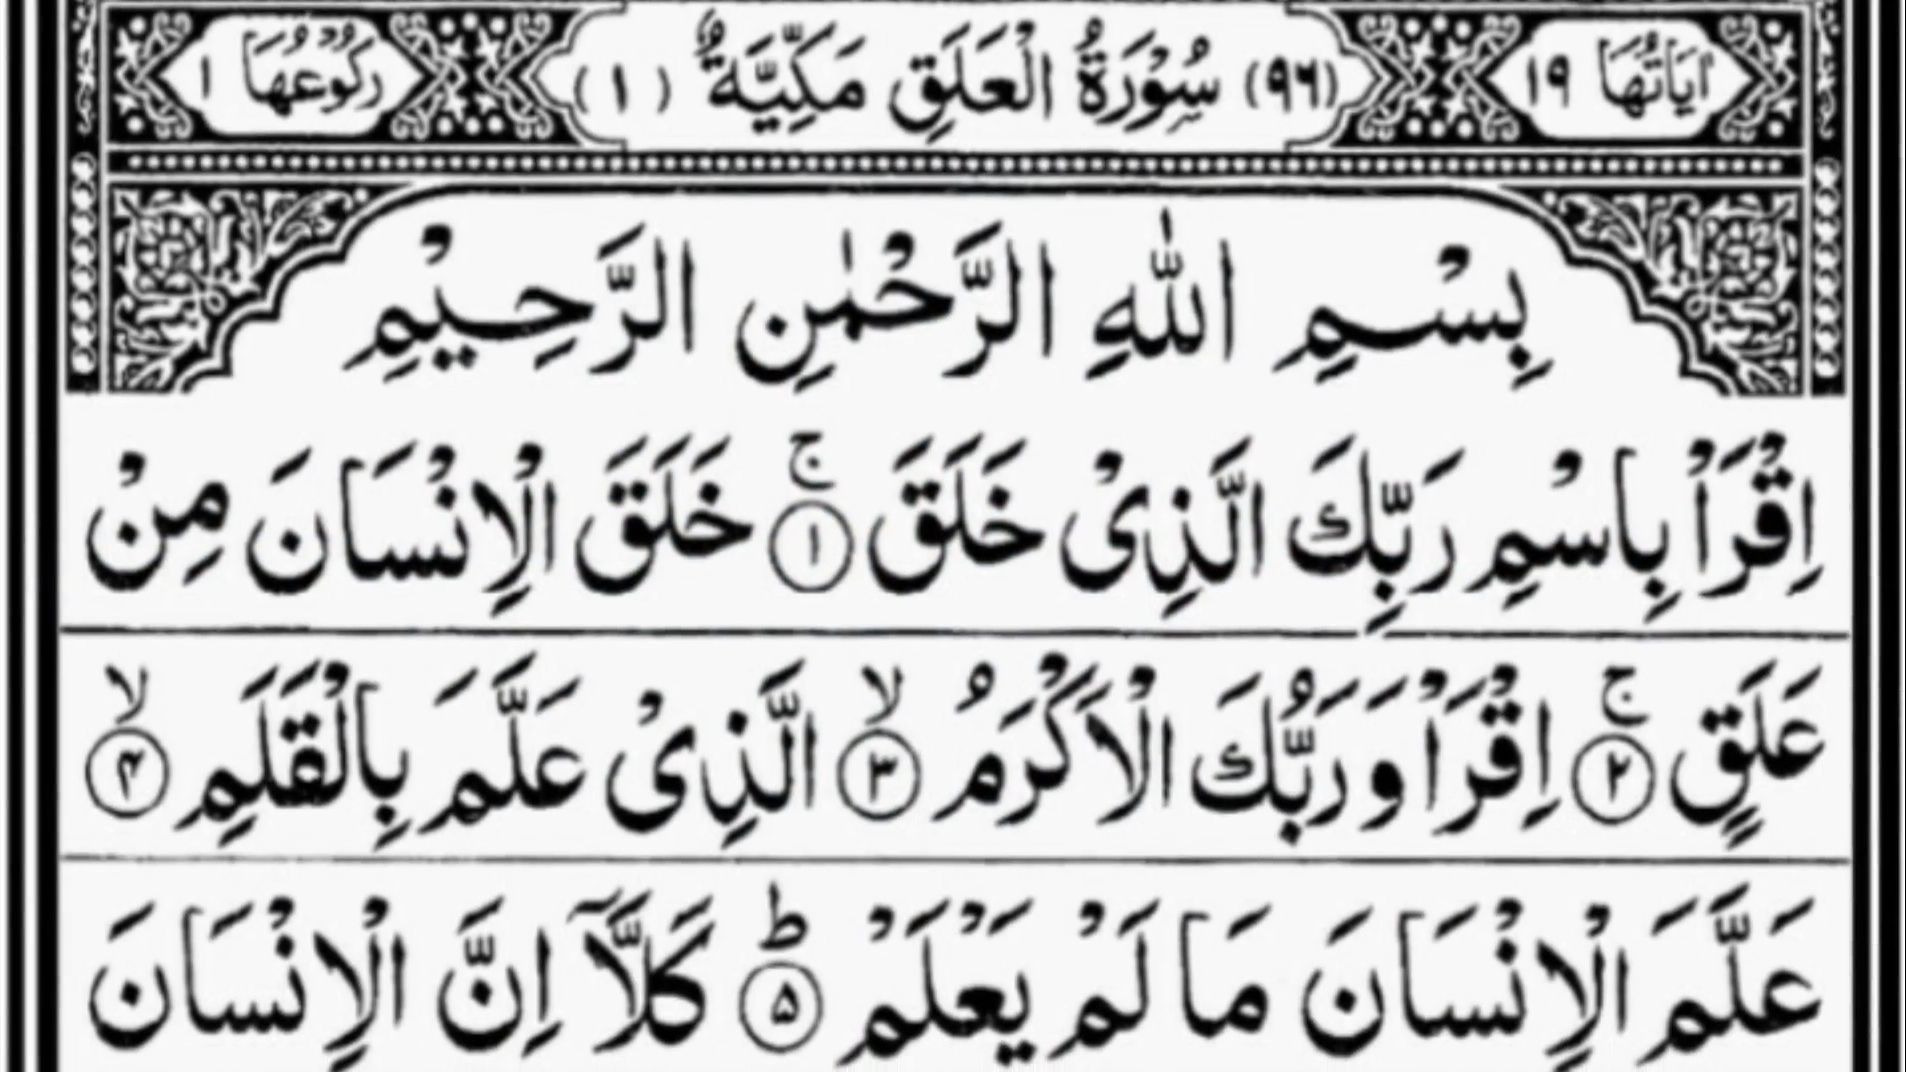 اٰیَاتُهَا ١٩ (٩٦) سُوْرَةُ الْعَلَقِ مَكِّیَّةٌ (١) رُكُوْعُهَا ١
بِسْمِ اللّٰهِ الرَّحْمٰنِ الرَّحِیْمِ
اِقْرَاْ بِاسْمِ رَبِّكَ الَّذِیْ خَلَقَ ۚ﴿۱﴾ خَلَقَ الْاِنْسَانَ مِنْ
عَلَقٍ ۚ﴿۲﴾ اِقْرَاْ وَرَبُّكَ الْاَكْرَمُ ۙ﴿۳﴾ الَّذِیْ عَلَّمَ بِالْقَلَمِ ۙ﴿۴﴾
عَلَّمَ الْاِنْسَانَ مَا لَمْ یَعْلَمْ ؕ﴿۵﴾ كَلَّاۤ اِنَّ الْاِنْسَانَ